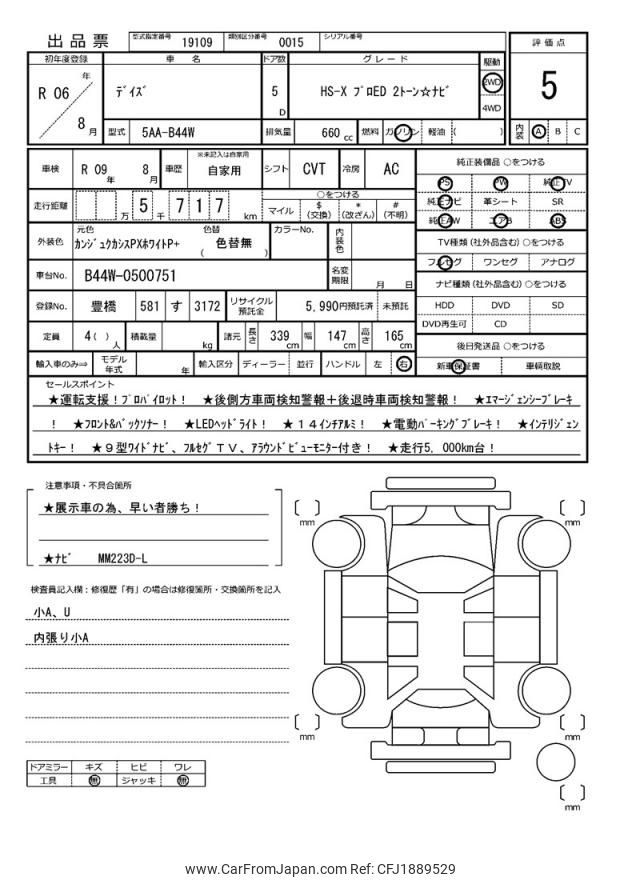 出品票 型式指定番号 19109 類別区分番号 0015 シリアル番号
評価点
5
内装 A B C
初年度登録 車名 ドア数 グレード 駆動
R 06 年 8 月
ﾃﾞｲｽﾞ
5 D
HS-X ﾌﾟﾛED 2ﾄｰﾝ☆ﾅﾋﾞ
2WD
4WD
型式 5AA-B44W 排気量 660 cc 燃料 ガソリン 軽油 ( )
車検 R 09 年 8 月 車歴 ※未記入は自家用 自家用 シフト CVT 冷房 AC
走行距離 万 5 千 7 1 7 km
○をつける
マイル $(交換) *(改ざん) #(不明)
外装色 元色 ｶﾝｼﾞｭｸｶｼｽPXﾎﾜｲﾄP+ 色替 ( 色替無 ) カラーNo. 内装色
車台No. B44W-0500751 名変期限 月 日
登録No. 豊橋 581 す 3172 リサイクル預託金 5,990円預託済 未預託
定員 4( )人 積載量 kg 諸元 長さ 339 cm 幅 147 cm 高さ 165 cm
輸入車のみ⇒ モデル年式 年 輸入区分 ディーラー 並行 ハンドル 左 右
純正装備品 ○をつける
PS PW 純正TV
純正ナビ 革シート SR
純正AW エアB ABS
TV種類(社外品含む) ○をつける
フルセグ ワンセグ アナログ
ナビ種類(社外品含む) ○をつける
HDD DVD SD
DVD再生可 CD
後日発送品 ○をつける
新車保証書 車輌取説
セールスポイント
★運転支援！ﾌﾟﾛﾊﾟｲﾛｯﾄ！ ★後側方車両検知警報＋後退時車両検知警報！ ★ｴﾏｰｼﾞｪﾝｼｰﾌﾞﾚｰｷ
！ ★ﾌﾛﾝﾄ&ﾊﾞｯｸｿﾅｰ！ ★LEDﾍｯﾄﾞﾗｲﾄ！ ★１４ｲﾝﾁｱﾙﾐ！ ★電動ﾊﾟｰｷﾝｸﾞﾌﾞﾚｰｷ！ ★ｲﾝﾃﾘｼﾞｪﾝ
ﾄｷｰ！ ★９型ﾜｲﾄﾞﾅﾋﾞ、ﾌﾙｾｸﾞＴＶ、ｱﾗｳﾝﾄﾞﾋﾞｭｰﾓﾆﾀｰ付き！ ★走行5，000km台！
注意事項・不具合箇所
★展示車の為、早い者勝ち！
★ﾅﾋﾞ MM223D-L
検査員記入欄：修復歴「有」の場合は修復箇所・交換箇所を記入
小A、U
内張り小A
ドアミラー キズ ヒビ ワレ
工具 無 ジャッキ 無
mm
mm
mm
mm
mm
www.CarFromJapan.com Ref: CFJ1889529